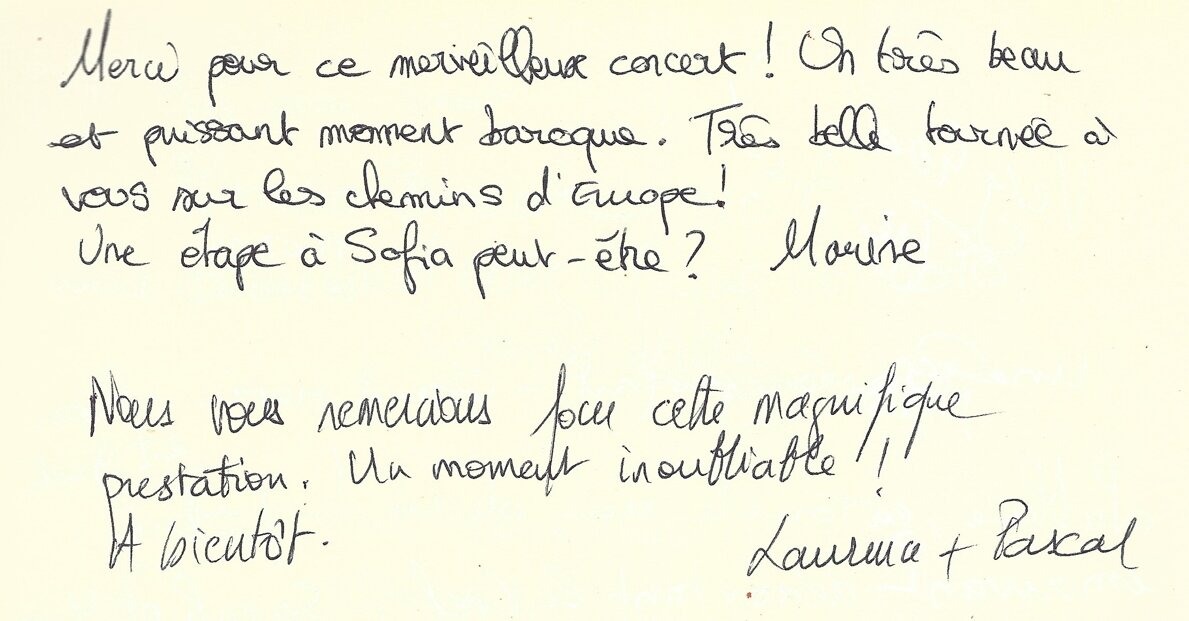 Merci pour ce merveilleux concert ! Un très beau
et puissant moment baroque. Très belle tournée à
vous sur les chemins d'Europe !
Une étape à Sofia peut-être ? Marine
Nous vous remercions pour cette magnifique
prestation. Un moment inoubliable !
A bientôt.
+ Pascal